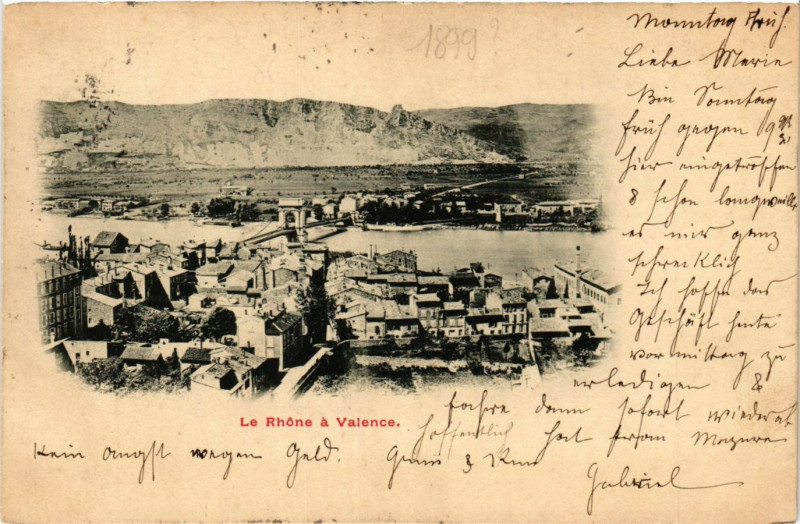 1899?
Monntag Früh.
Liebe Marie
Bin Sonntag
früh gegen 9
hier eingetroffen
& schon langweilt
es mir ganz
schrecklich
Ich hoffe das
Geschäft heute
vormittag zu
erledigen &
fahre dann sofort wieder ab
hoffentlich hat
Le Rhône à Valence.
Kein angst wegen Geld. Gruss & Kuss
Gabriel